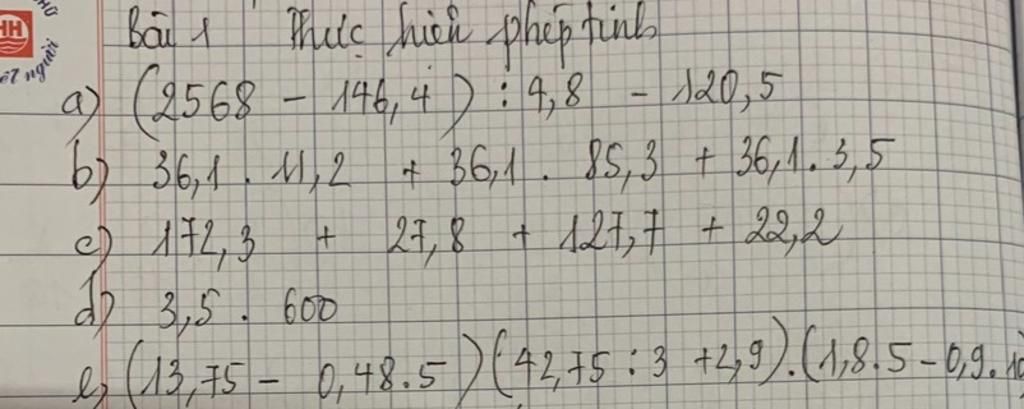 HH
ết người
Bài 1 Thực hiện phép tính
a) (2568 - 146,4) : 4,8 - 120,5
b) 36,1 . 11,2 + 36,1 . 85,3 + 36,1 . 3,5
c) 172,3 + 27,8 + 127,7 + 22,2
d) 3,5 . 600
e) (13,75 - 0,48.5) (42,75 : 3 + 2,9) . (1,8.5 - 0,9.10